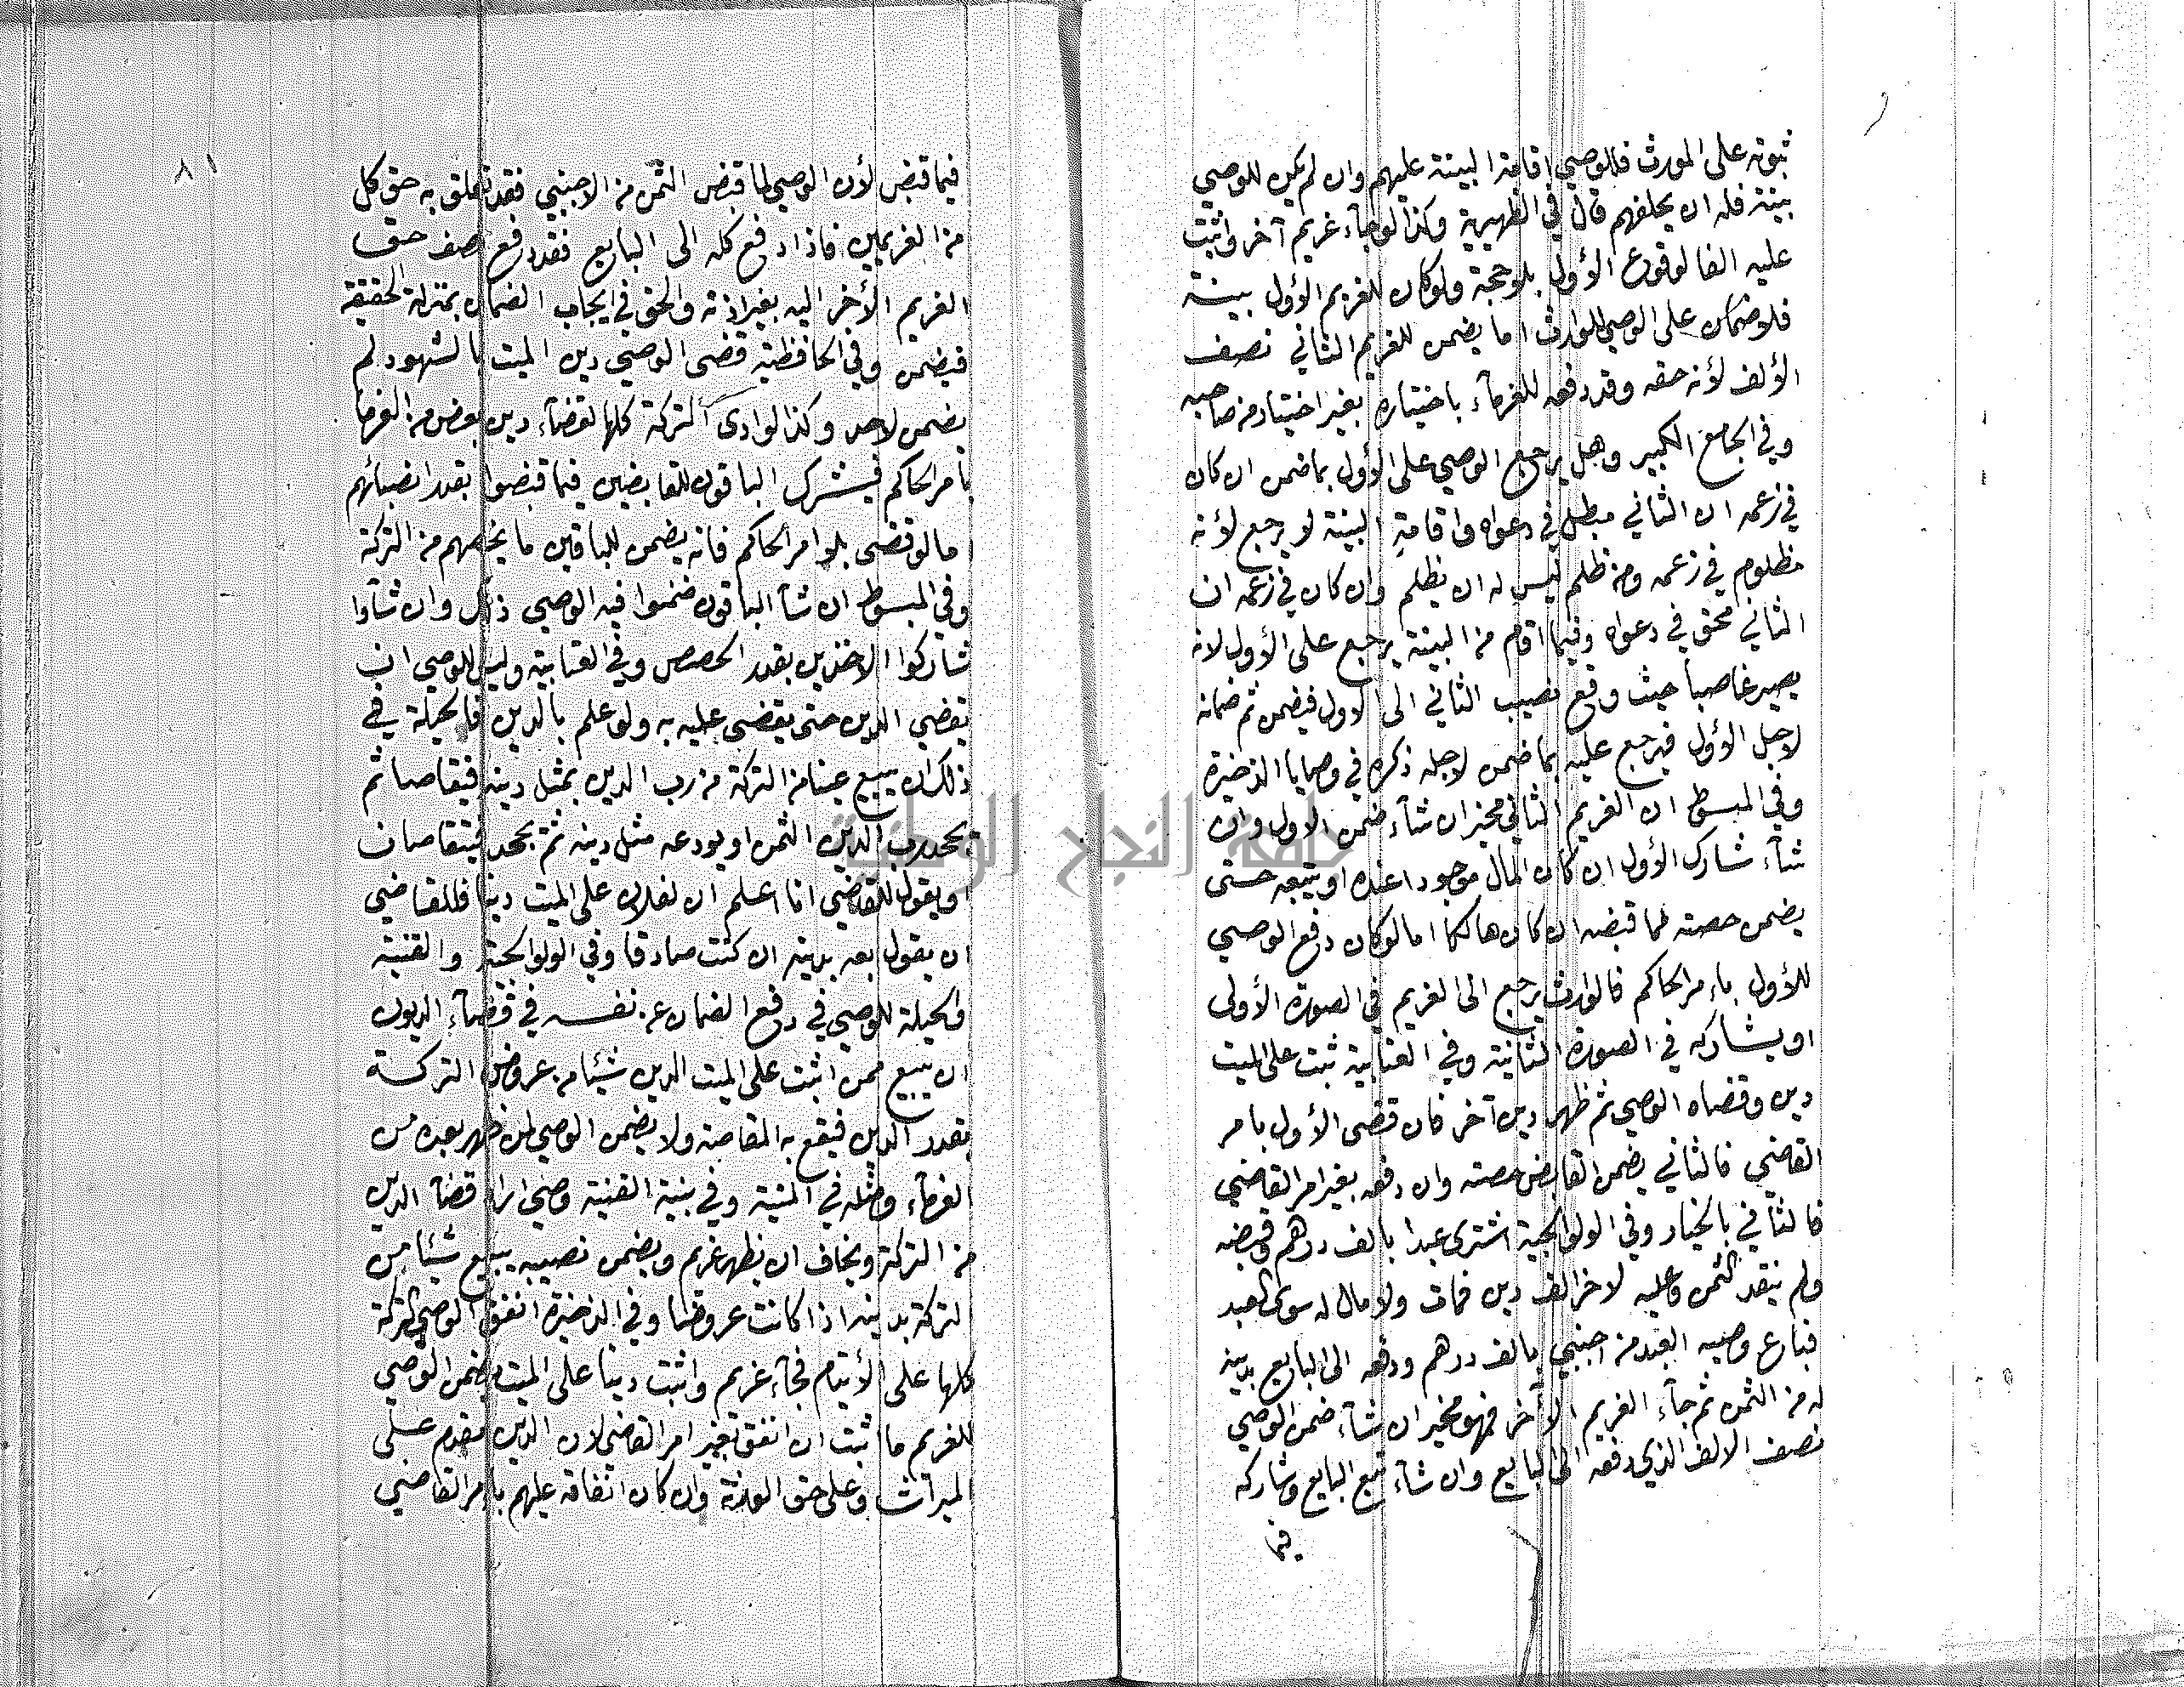 ثبوته على المورث فللوصي اقامة البينة عليهم وان لم يكن للوصي
بينة فله ان يحلفهم قال في الظهيرية وكذا لو جآء غريم آخر واثبت
عليه الفا لوقوع الأول بلا حجة ولو كان للغريم الأول بينة
فلا ضمان على الوصي للوارث اما يضمن للغريم الثاني نصف
الألف لأنه حقه وقد دفعه للغرمآء باختياره بغير اختيار من صاحبه
وفي الجامع الكبير وهل يرجع الوصي على الأول بما ضمن ان كان
في زعمه ان الثاني مبطل في دعواه واقامة البينة لا يرجع لأنه
مظلوم في زعمه ومن ظلم ليس له ان يظلم وان كان في زعمه ان
الثاني محق في دعواه وفيما اقام من البينة يرجع على الأول لانه
يصير غاصبا حيث وقع نصيب الثاني الى الاول فيضمن ثم ضمانه
لاجل الأول فيرجع عليه بما ضمن لاجله ذكره في وصايا الذخيرة
وفي المبسوط ان الغريم الثاني مخير ان شآء ضمن الاول وان
شآء شارك الأول ان كان المال موجودا عنده او يتبعه حتى
يضمن حصته لما قبضه ان كان هالكا اما لو كان دفع الوصي
للأول بامر الحاكم فالوارث يرجع الى الغريم في الصورة الأولى
او يشاركه في الصورة الثانية وفي العتابية ثبت على الميت
دين وقضاه الوصي ثم ظهر دين آخر فان قضى الأول بامر
القاضي فالثاني يضمن القابض حصته وان دفعه بغير امر القاضي
فالثآني بالخيار وفي الولوالجية اشترى عبدا بالف درهم وقبضه
ولم ينقد الثمن وعليه لاخر الف دين فمات ولا مال له سوى العبد
فباع وصيه العبد من اجنبي بالف درهم ودفعه الى البايع بدينه
له من الثمن ثم جآء الغريم الآخر فهو مخير ان شآء ضمن الوصي
نصف الالف الذي دفعه الى البايع وان شآء تبع البايع وشاركه
فيما
٨١
فيما قبض لأن الوصي لما قبض الثمن من الاجنبي فقد تعلق به حق كل
من الغريمين فاذا دفع كله الى البايع فقد دفع نصف حق
الغريم الأخر اليه بغير اذنه والحق في ايجاب الضمان بمنزلة الحقيقة
فيضمن وفي الحافظية قضى الوصي دين الميت بالشهود لم
يضمن لاحد وكذا لو ادى التركة كلها لقضآء دين بعض من الغرما
بامر الحاكم فيشرك الباقون للقابضين فيما قبضوا بقدر انصبائهم
اما لو قضى بلا امر الحاكم فانه يضمن للباقين ما يخصهم من التركة
وفي المبسوط ان شآ الباقون ضمنوا فيه الوصي ذلك وان شآوا
شاركوا الاخذين بقدر الحصص وفي العتابية وليس للوصي ان
يقضي الدين حتى يقضى عليه به ولو علم بالدين فالحيلة في
ذلك ان يبيع عينا من التركة من رب الدين بمثل دينه فيتقاصا ثم
يجحد رب الدين الثمن او يودعه مثل دينه ثم يجحد فيتقاصان
او يقول للقاضي انا اعلم ان لفلان على الميت دينا فللقاضي
ان يقول بعه بدينه ان كنت صادقا وفي الولوالجية والقنية
والحيلة للوصي في دفع الضمان عن نفسه في قضآء الديون
ان يبيع ممن اثبت على الميت الدين شيئا من عروض التركة
بقدر الدين فيقع به المقاصة ولا يضمن الوصي لمن ظهر بعده من
الغرمآء ومثله في المنية وفي بنية القنية وصي اراد قضآ الدين
من التركة ويخاف ان يظهر غريم ويضمن نصيبه يبيع شيئا من
التركة بدينه اذا كانت عروضا وفي الذخيرة انفق الوصي التركة
كلها على الأيتام فجآء غريم واثبت دينا على الميت يضمن الوصي
للغريم ما اثبت ان انفق بغير امر القاضي لان الدين مقدم على
الميراث وعلى حق الورثة وان كان انفاقه عليهم بامر القاضي
جامعة النجاح الوطنية